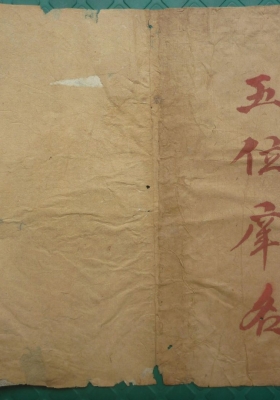 五位庠名